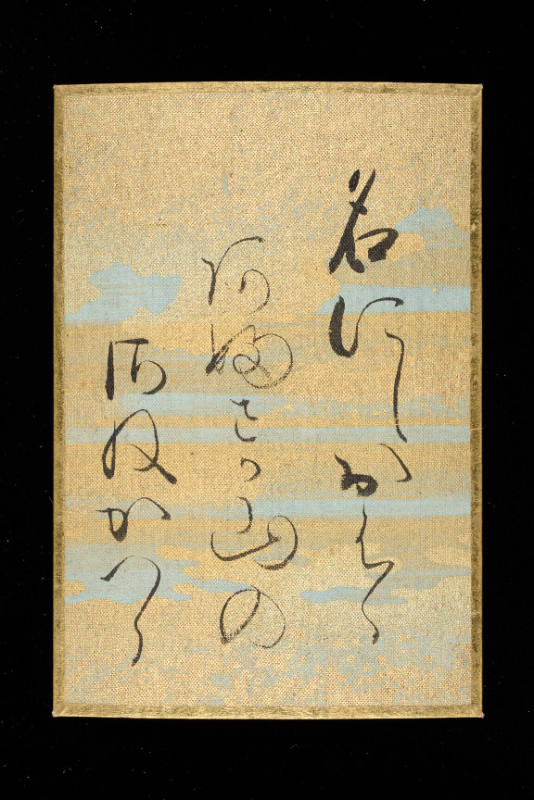 名にしおはゝ
あふさか山の
さねかつら